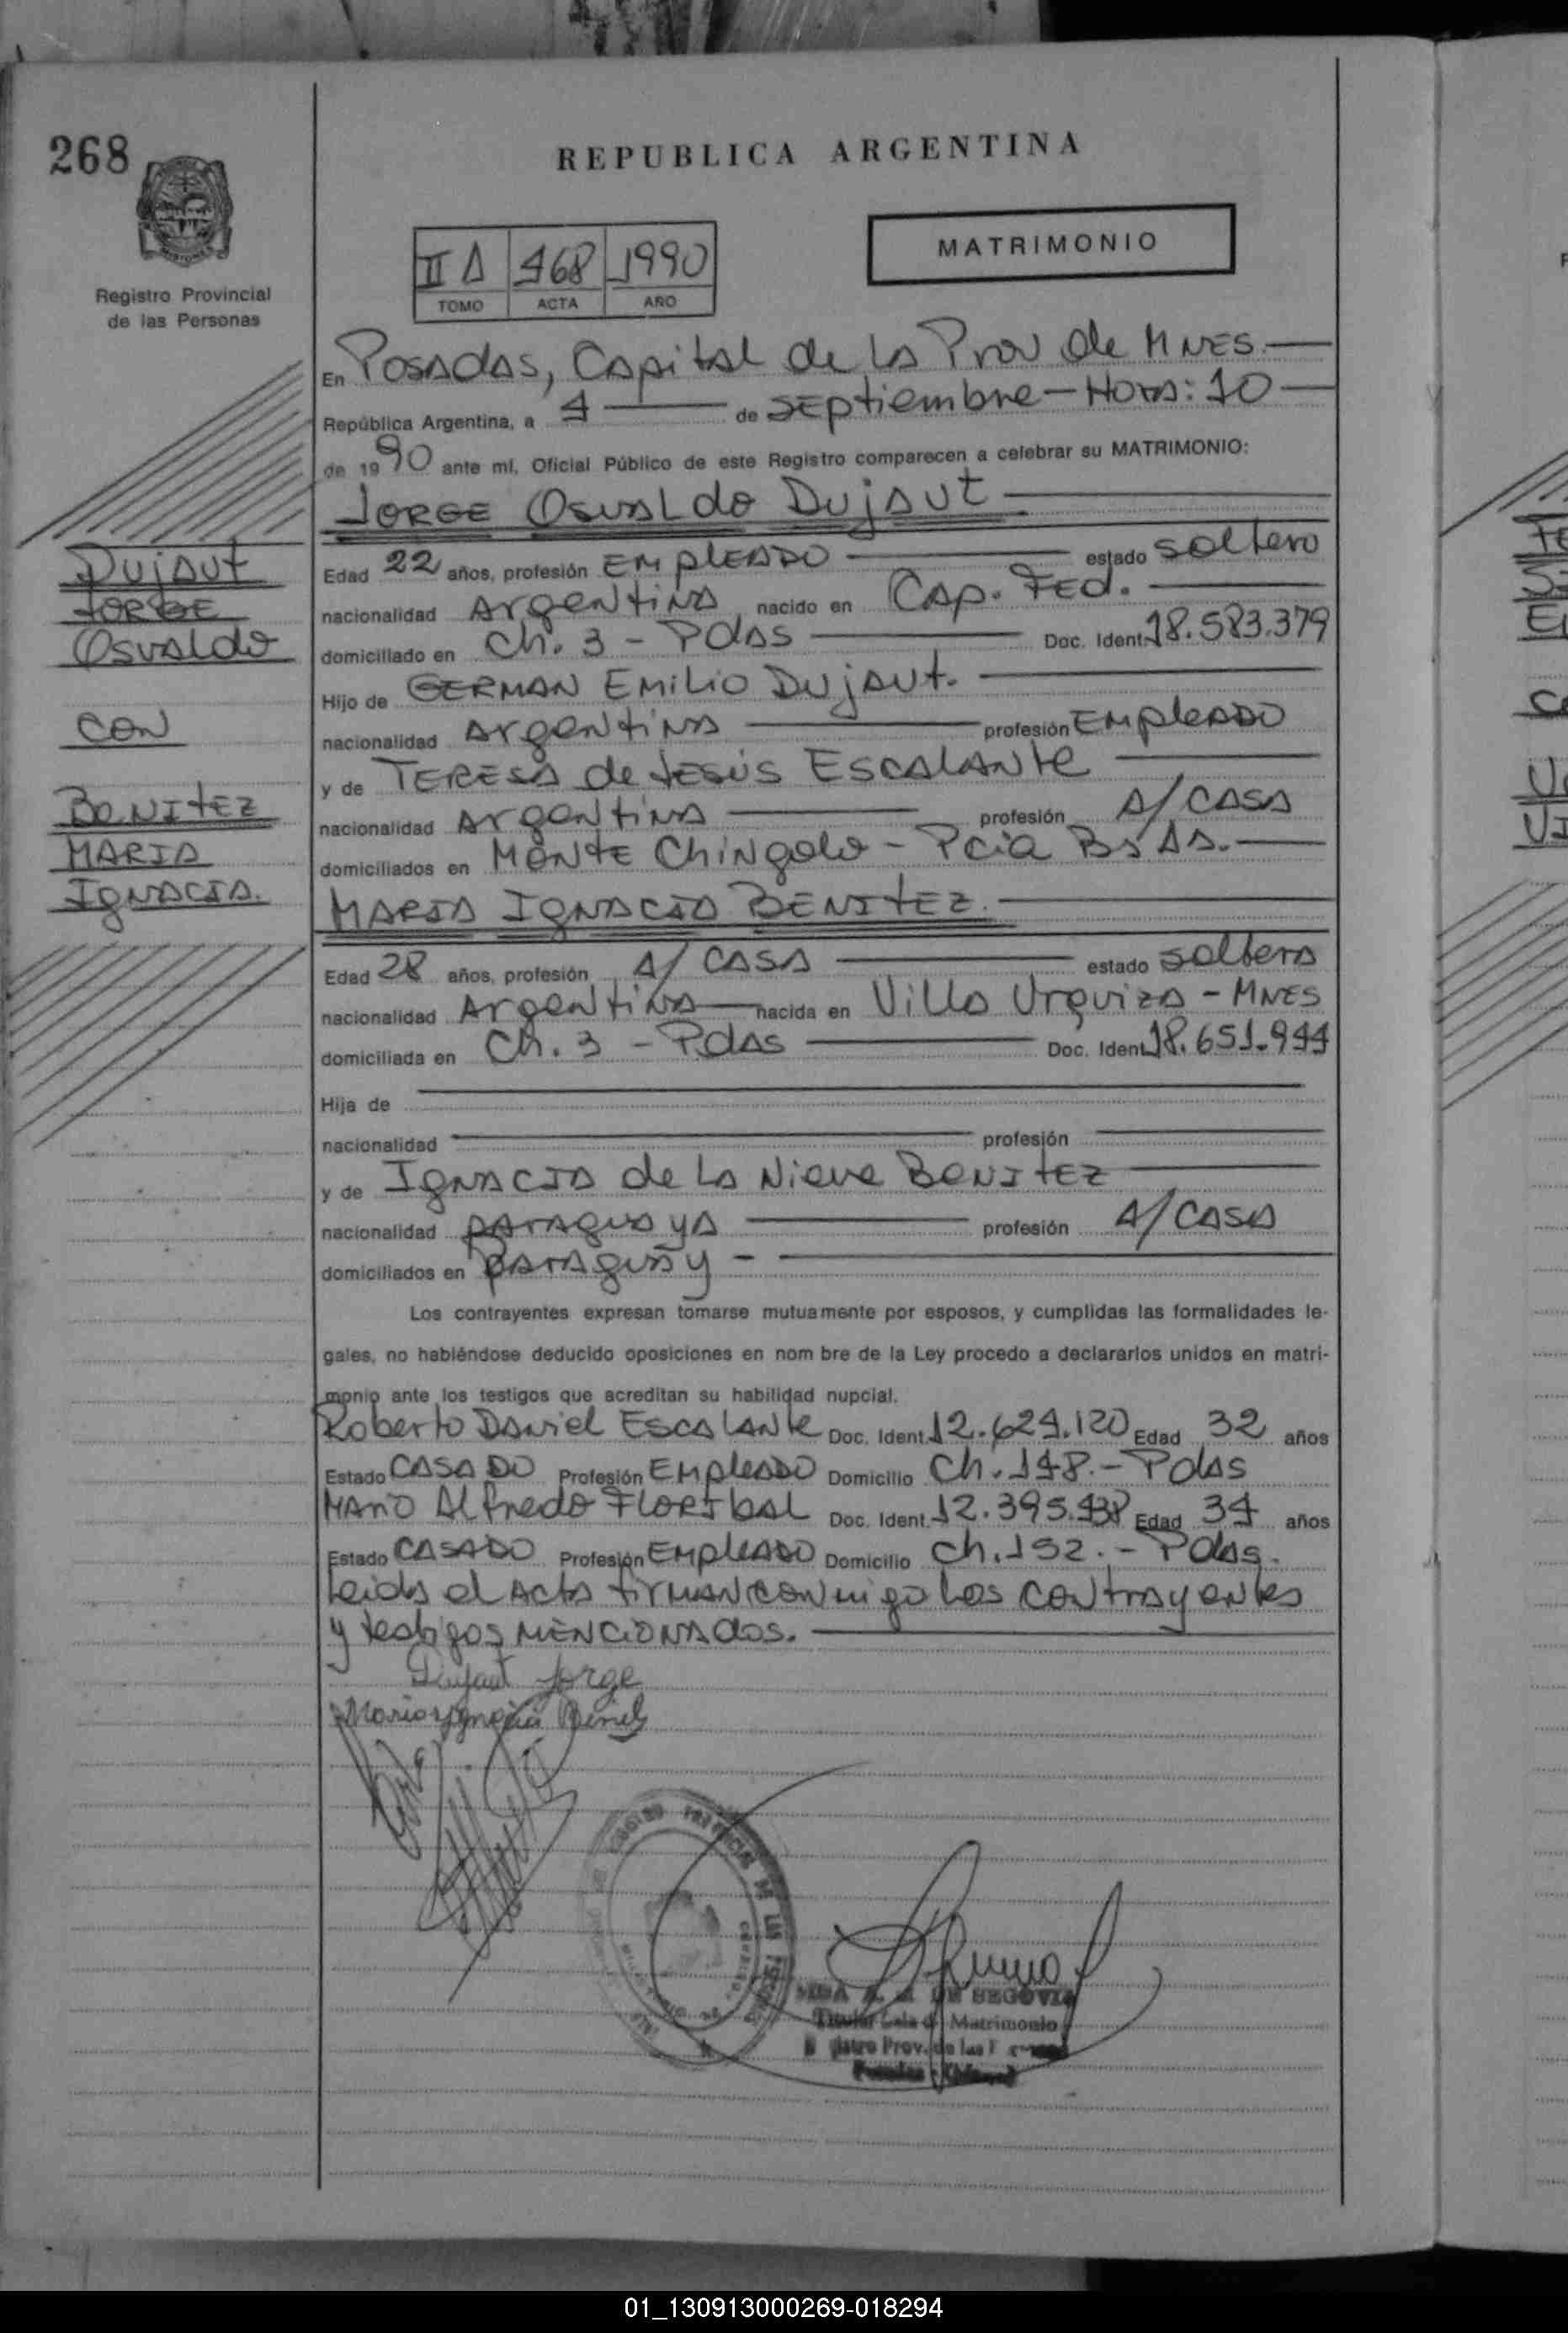 268
REPUBLICA ARGENTINA
MATRIMONIO
II A 468 1990
TOMO ACTA AÑO
Registro Provincial
de las Personas
En Posadas, Capital de la Prov de Mnes.
República Argentina, a 4 de septiembre - Hora: 10
de 1990 ante mí, Oficial Público de este Registro comparecen a celebrar su MATRIMONIO:
Jorge Osvaldo Dujaut
Dujaut
Jorge
Osvaldo
con
Benitez
Maria
Ignacia.
Edad 22 años, profesión Empleado estado soltero
nacionalidad Argentina nacido en Cap. Fed.
domiciliado en Ch. 3 - Pdas Doc. Ident. 18.583.379
Hijo de German Emilio Dujaut.
nacionalidad Argentina profesión Empleado
y de Teresa de Jesús Escalante
nacionalidad Argentina profesión A/ casa
domiciliados en Monte Chingolo - Pcia Bs As.
Maria Ignacia Benitez.
Edad 28 años, profesión A/ casa estado soltera
nacionalidad Argentina nacida en Villa Urquiza - Mnes
domiciliada en Ch. 3 - Pdas Doc. Ident. 18.651.944
Hija de
nacionalidad profesión
y de Ignacia de la Nieve Benitez
nacionalidad paraguaya profesión A/ casa
domiciliados en paraguay -
Los contrayentes expresan tomarse mutuamente por esposos, y cumplidas las formalidades le-
gales, no habiéndose deducido oposiciones en nom bre de la Ley procedo a declararlos unidos en matri-
monio ante los testigos que acreditan su habilidad nupcial.
Roberto Daniel Escalante Doc. Ident. 12.624.120 Edad 32 años
Estado Casado Profesión Empleado Domicilio Ch. 148.- Pdas
Mario Alfredo Floribal Doc. Ident. 12.395.438 Edad 34 años
Estado Casado Profesión Empleado Domicilio Ch. 192.- Pdas.
Leida el acta firman conmigo los contrayentes
y testigos mencionados.
Dujaut Jorge
Maria Ignacia Benitez
DE SEGOVIA
Titular Sala de Matrimonio
Prov. de las
01_130913000269-018294